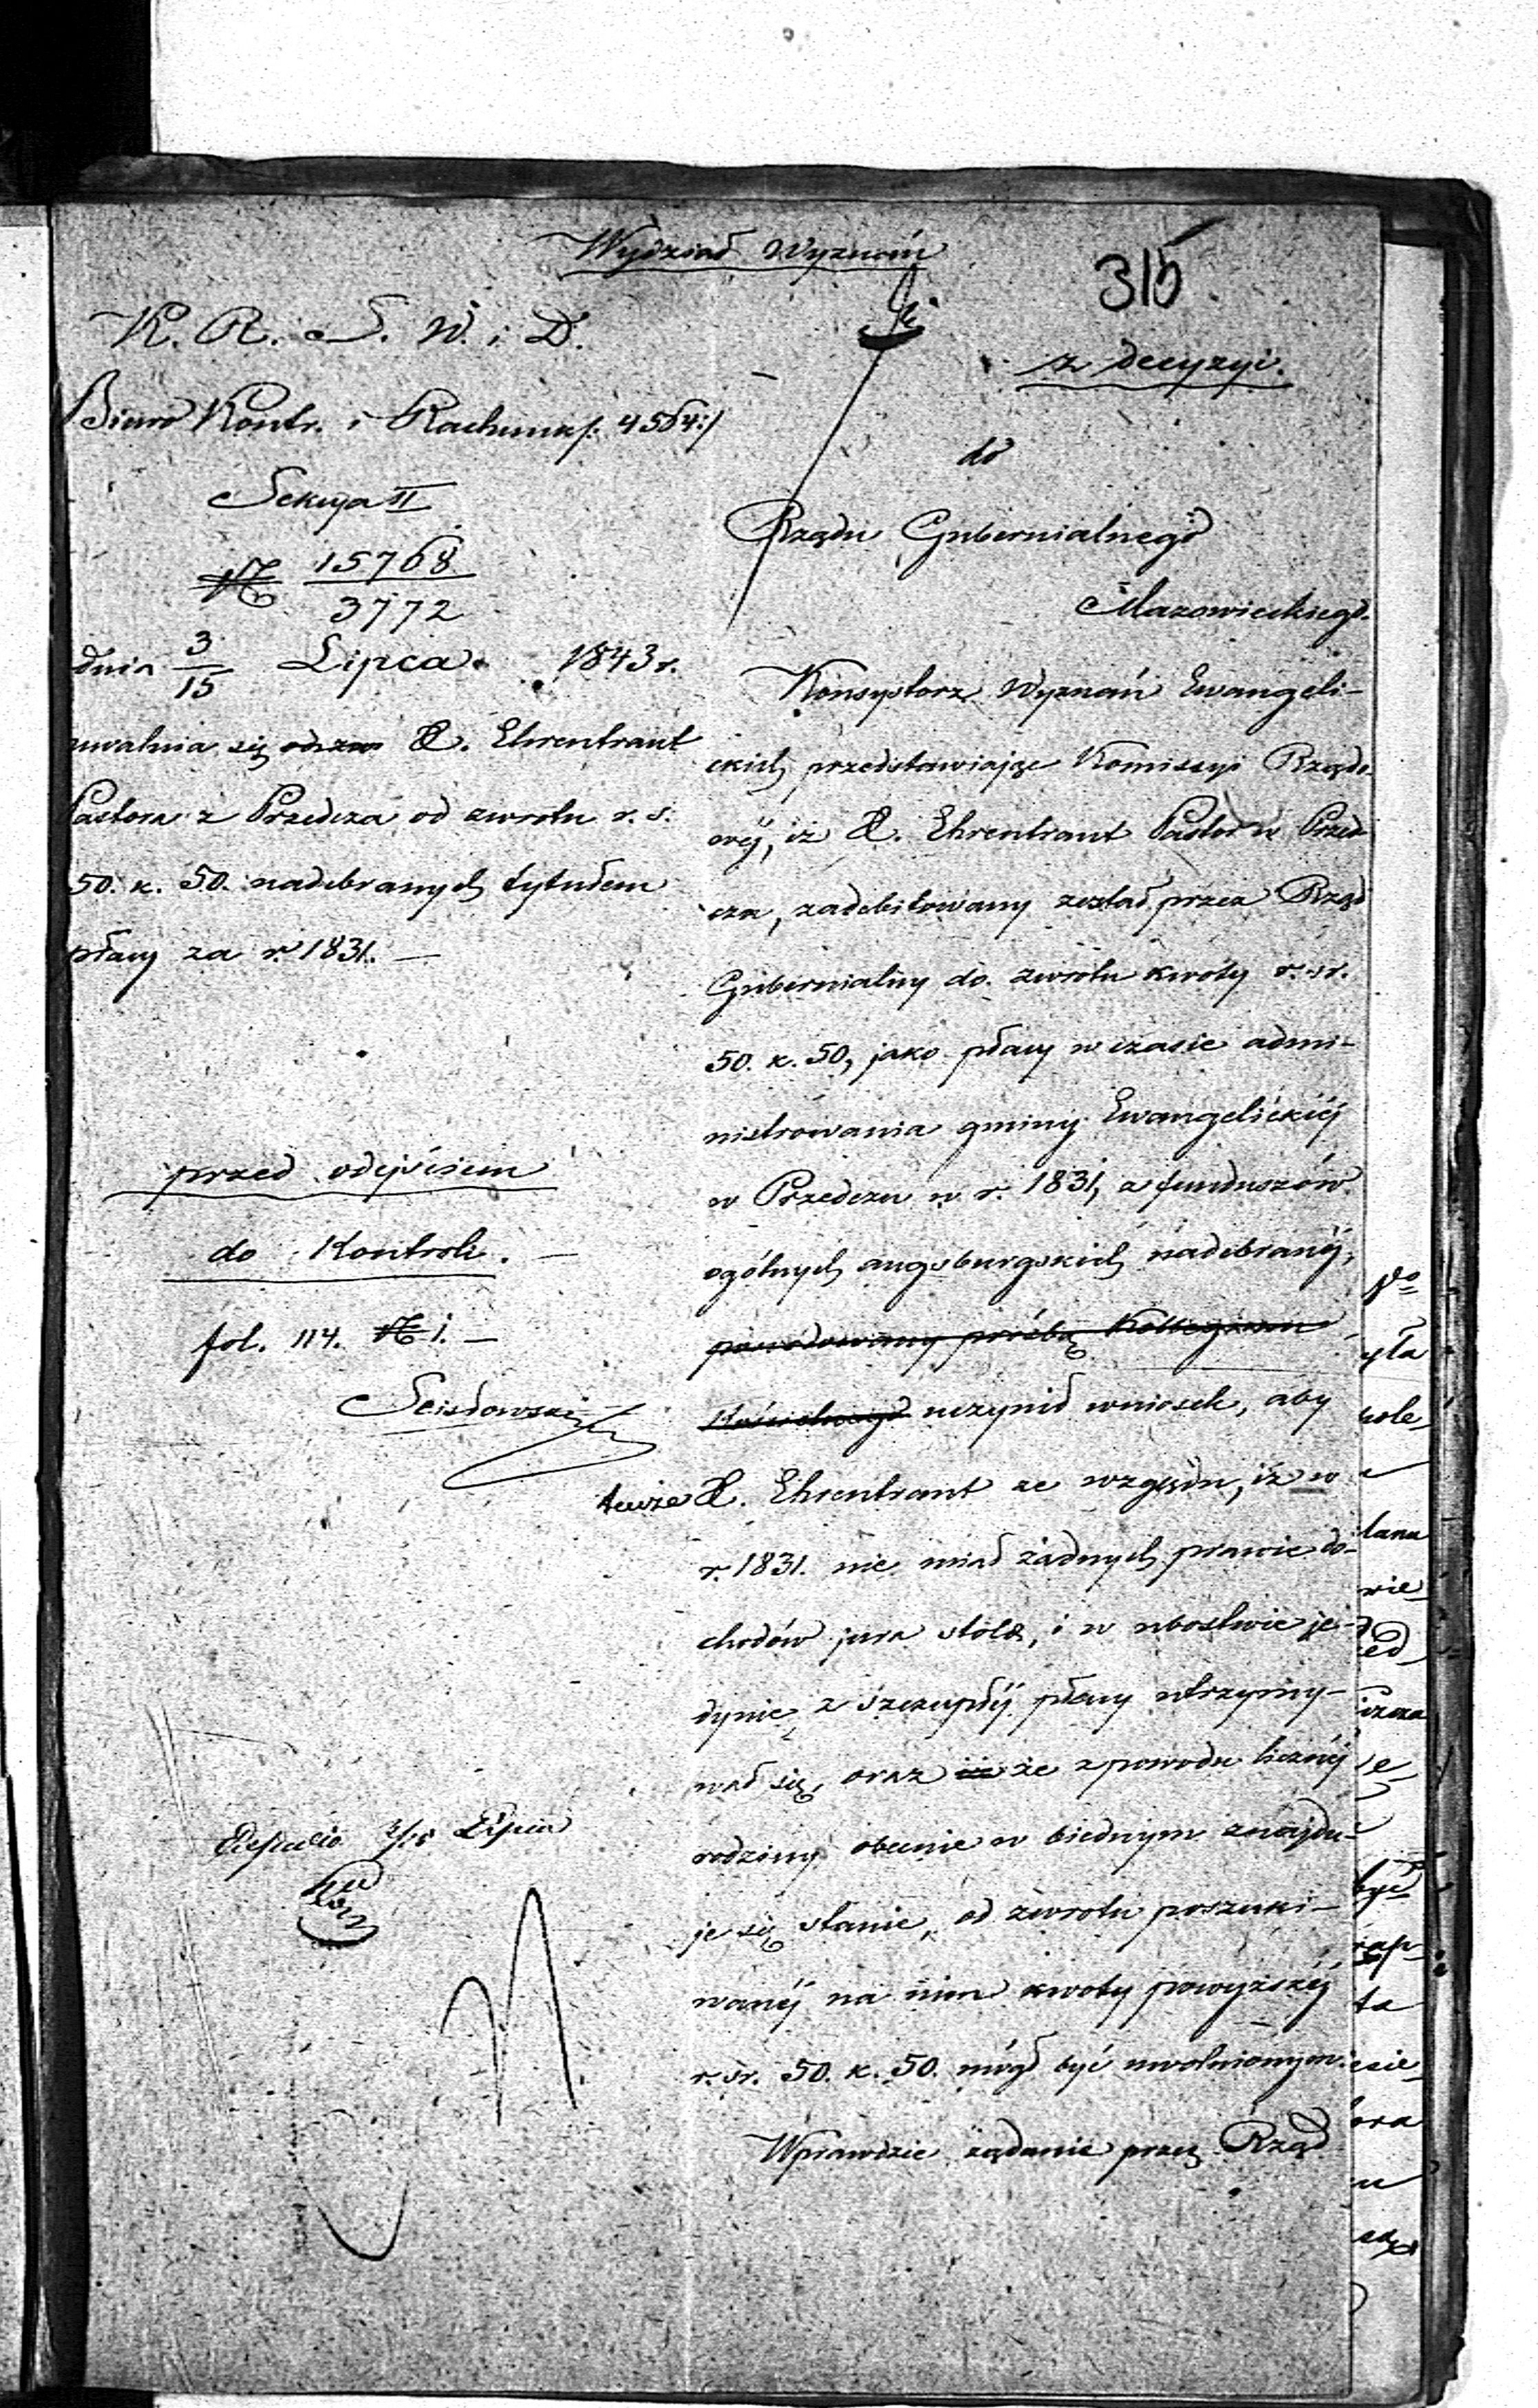 Wydział Wyznań
315
K. R. S. W. i D.
z decyzyi.
Biuro Kontr. i Rachunk /: 4564 :/
do
Sekcya II
Rządu Gubernialnego
№ 15768
3772
Mazowieckiego.
dnia 3/15 Lipca 1843 r.
uwalnia się X. Ehrentraut
Pastora z Przedcza od zwrotu r. s.
50. k. 50. nadebranych tytułem
płacy za r. 1831. —
przed odejściem
do Kontroli. —
fol. 114. № 1. —
Expedio 3/15 Lipca
Konsystorz Wyznań Ewangeli-
ckich przedstawiając Komissyi Rządo-
wéj, iż X. Ehrentraut Pastor w Przed-
czu, zadebitowany został przez Rząd
Gubernialny do zwrotu kwoty r. sr.
50. k. 50, jako płacy w czasie admi-
nistrowania gminy Ewangelickiéj
w Przedczu w r. 1831, z funduszów
ogólnych augsburgskich nadebranéj,
powodowany prośbą Kollegium
Kościelnego uczynił wniosek, aby
tenże X. Ehrentraut ze względu, iż w
r. 1831. nie miał żadnych prawie do-
chodów jura stolæ, i w ubóstwie je-
dynie z szczupłéj płacy utrzymy-
wał się, oraz iż że z powodu licznéj
rodziny obecnie w biednym znajdu-
je się stanie, od zwrotu poszuki-
wanéj na nim kwoty powyższéj
r. sr. 50. k. 50. mógł być uwolnionym.
Wprawdzie żądanie przez Rząd